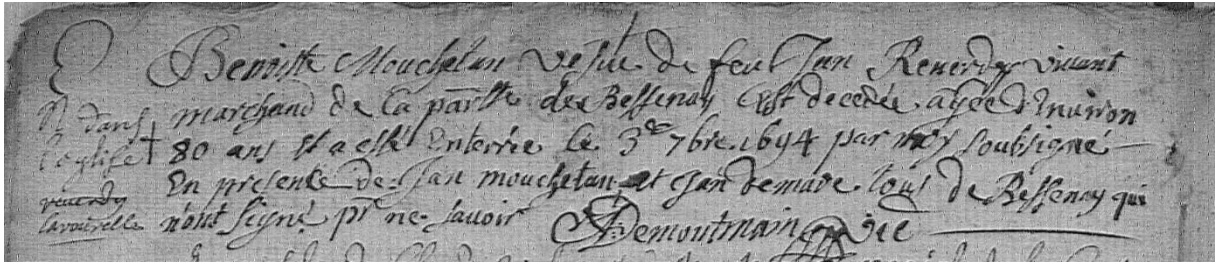 Benoiste Mouchetan vefue de feu Jan Reuerdy viuant
marchand de la parsse de Bessenay Est decedée agée d'Enuiron
80 ans Et a esté Enterrée le 3e 7bre 1694 par moy soubsigné
En presence de Jan mouchetan et Jan demare tous de Bessenay qui
n'ont signé pr ne sauoir Demoutmain vic
dans
l'eglise
reuerdy